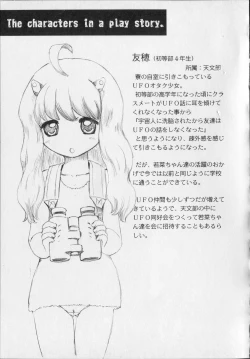 The characters in a play story.
友穂（初等部４年生）
所属：天文部
寮の自室に引きこもっている
ＵＦＯオタク少女。
初等部の高学年になった頃にクラ
スメートがＵＦＯ話に耳を傾けて
くれなくなった事から
『宇宙人に洗脳されたから友達は
ＵＦＯの話をしなくなった』
と思うようになり、疎外感を感じ
て引きこもるようになった。
だが、若菜ちゃん達の活躍のおか
げで今では以前と同じように学校
に通うことができている。
ＵＦＯ仲間も少しずつだが増えて
きているようで、天文部の中に
ＵＦＯ同好会をつくって若菜ちゃ
ん達を会に招待することもあるら
しい。